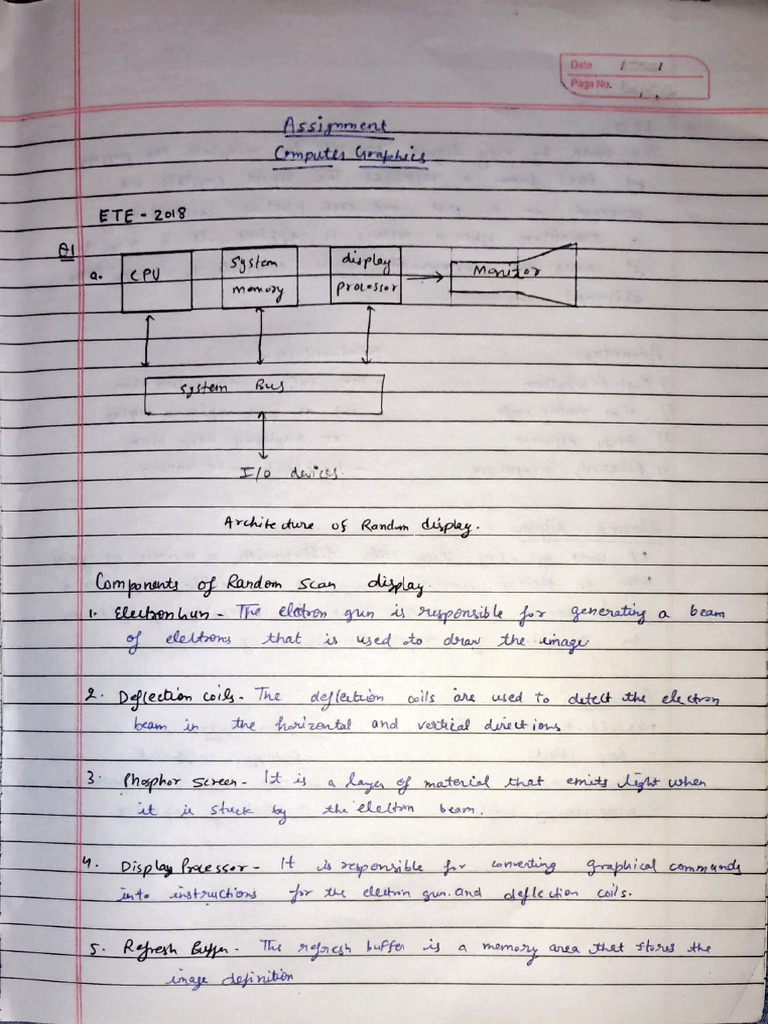 Date / /
Page No.
Assignment
Computer Graphics
ETE - 2018
Q1
a. CPU
system
memory
display
processor
Monitor
system Bus
I/O devices.
Architecture of Random display.
Components of Random scan display.
1. Electron Gun - The eletron gun is responsible for generating a beam
of elektrons that is used to draw the image.
2. Deflection coils - The deflection coils are used to detect the electron
beam in the horizontal and vertical directions
3. Phosphor Screen - It is a layer of material that emits light when
it is stuck by the elektron beam.
4. Display Processor - It is responsible for converting graphical commands
into instructions for the electron gun and deflection coils.
5. Refresh Buffer - The refresh buffer is a memory area that stores the
image definition